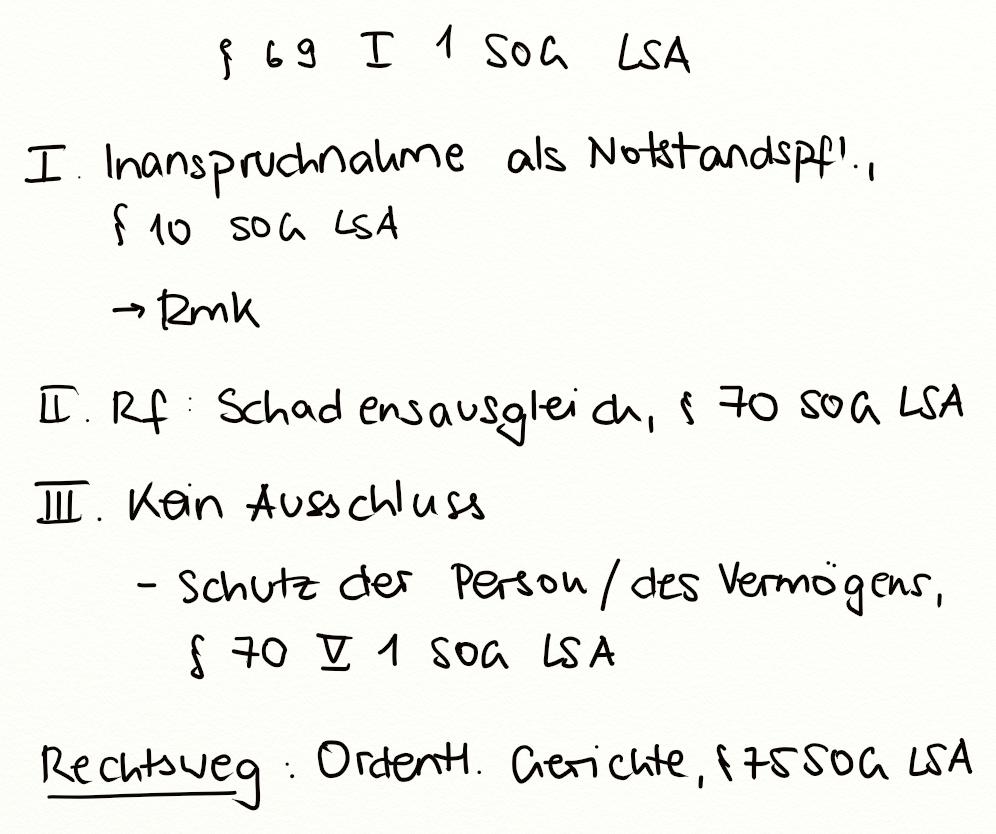 § 69 I 1 SOG LSA
I. Inanspruchnahme als Notstandspfl.,
§ 10 SOG LSA
→ Rmk
II. Rf: Schadensausgleich, § 70 SOG LSA
III. Kein Ausschluss
- Schutz der Person / des Vermögens,
§ 70 V 1 SOG LSA
Rechtsweg: Ordentl. Gerichte, § 75 SOG LSA